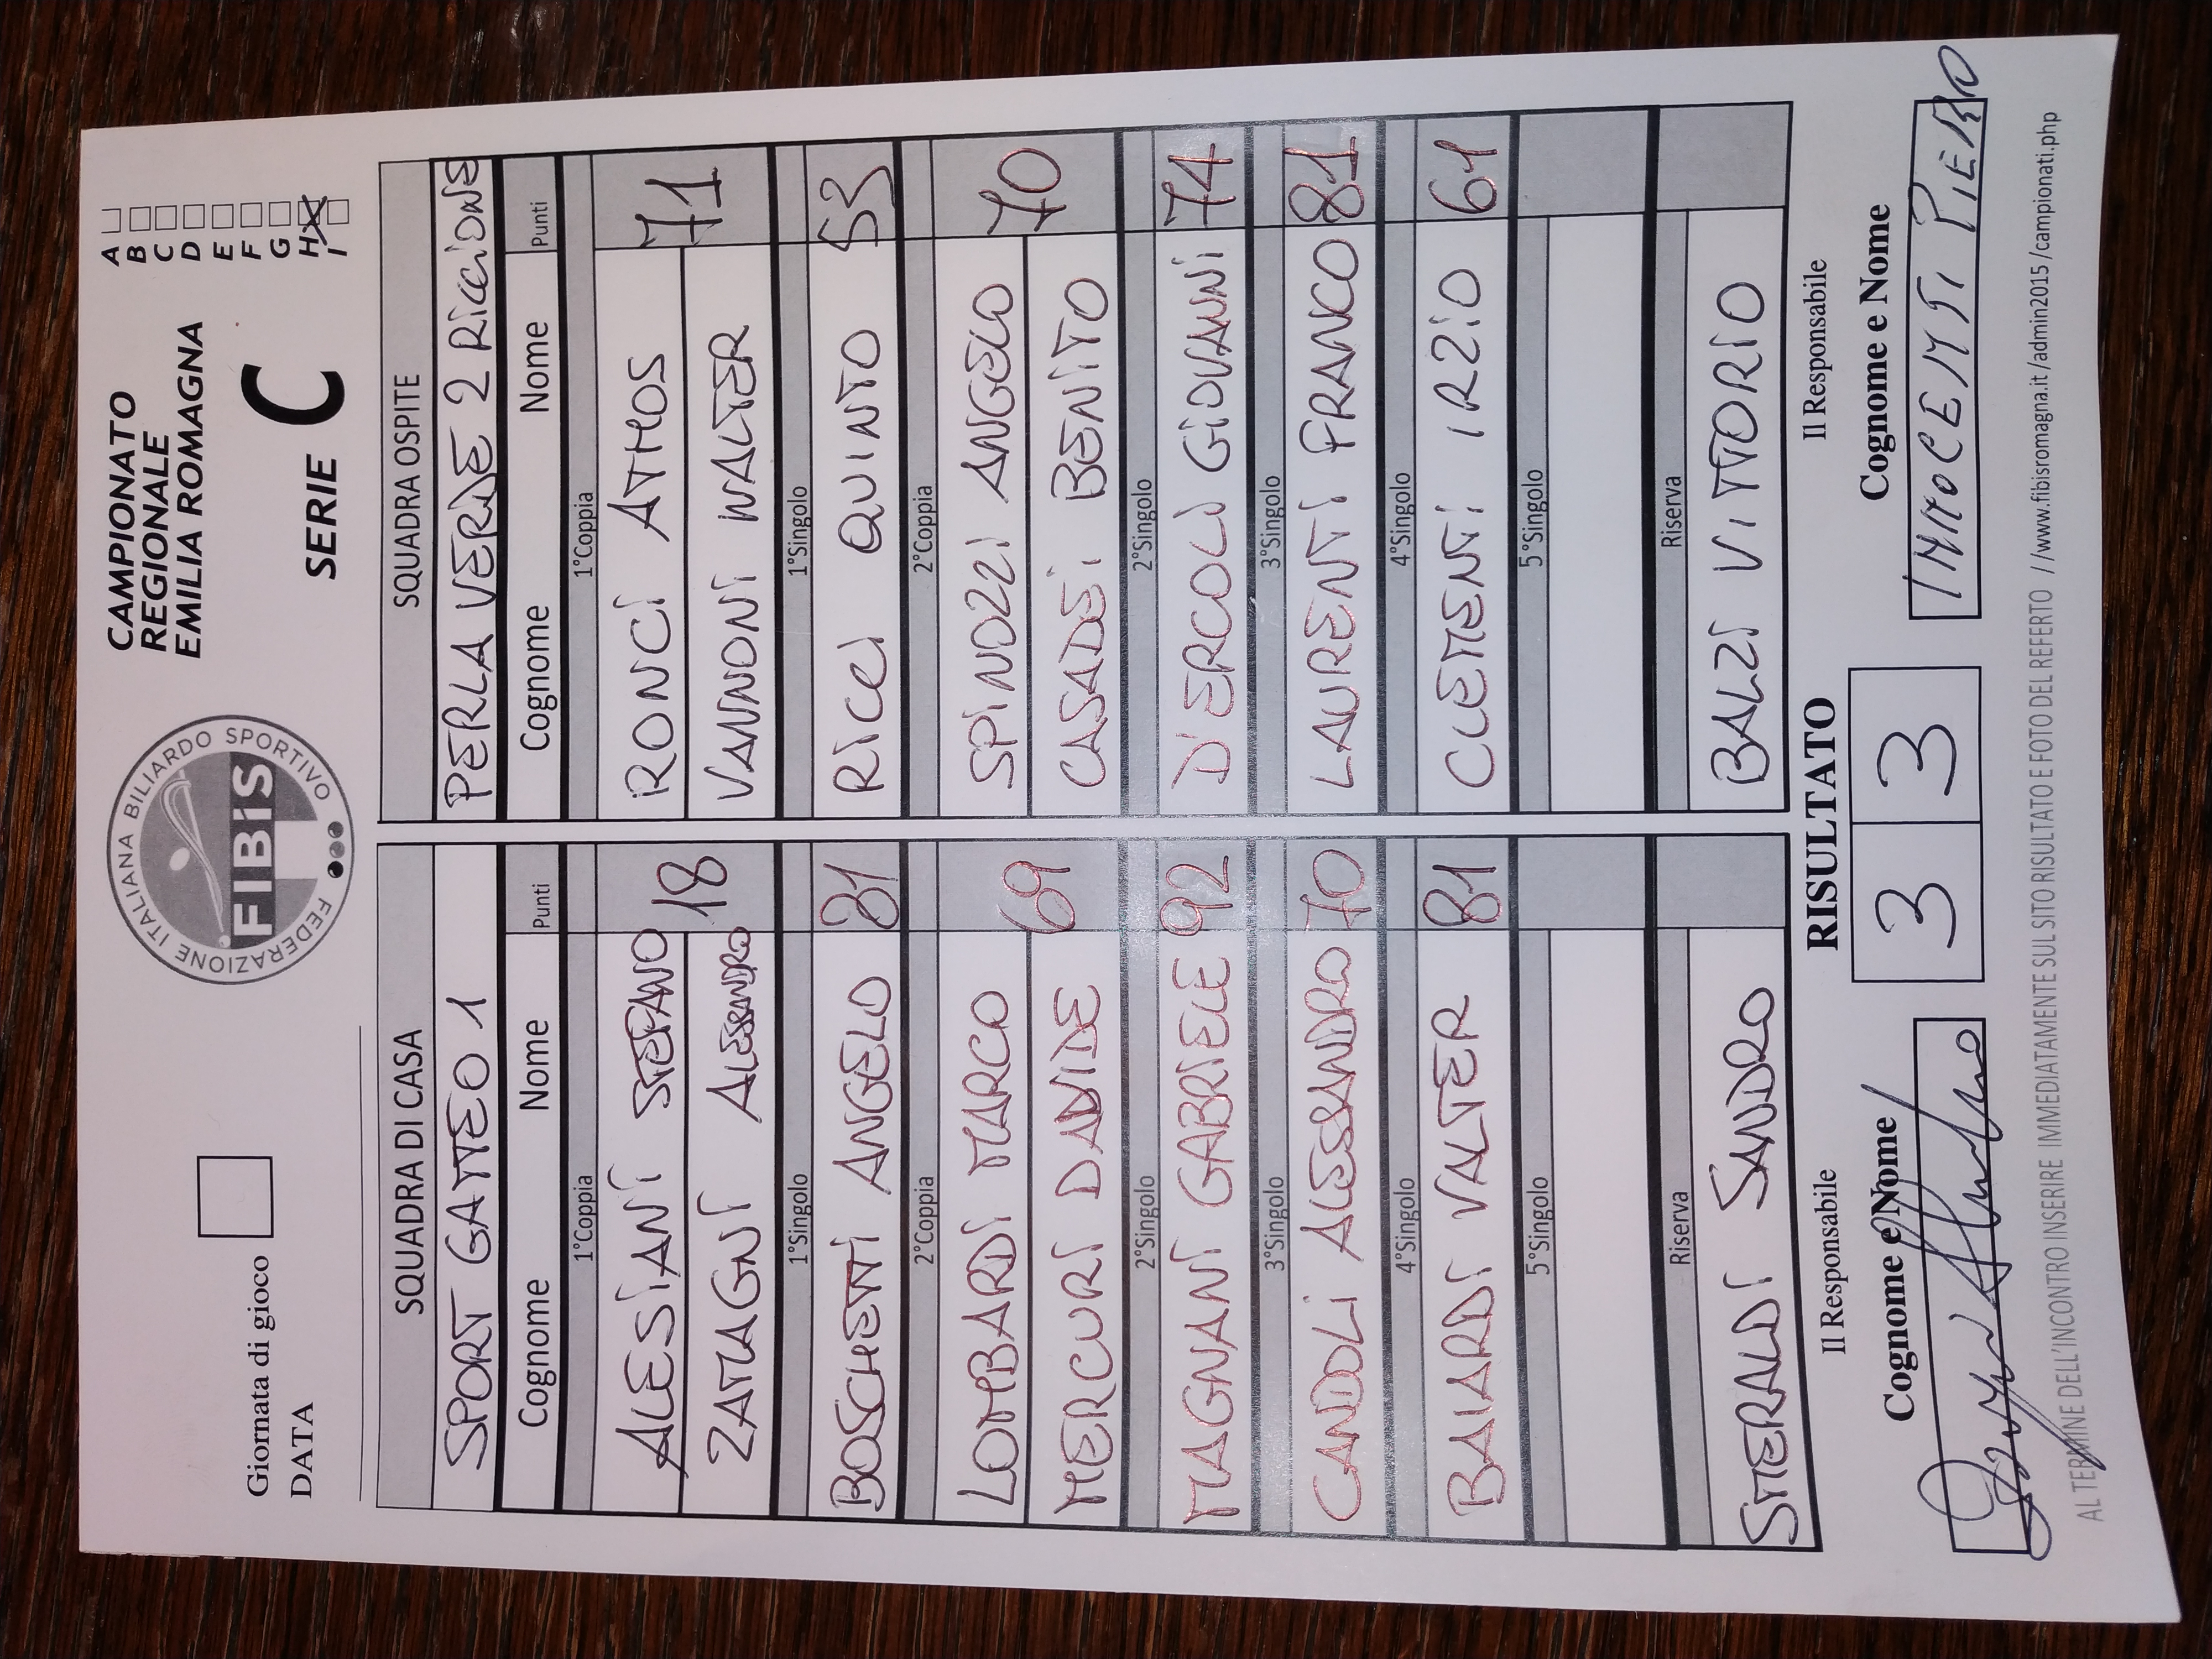 Giornata di gioco
DATA
FEDERAZIONE ITALIANA BILIARDO SPORTIVO
FIBiS
CAMPIONATO
REGIONALE
EMILIA ROMAGNA
SERIE C
A
B
C
D
E
F
G
H X
I
SQUADRA DI CASA
SPORT GATTEO 1
Cognome Nome Punti
1°Coppia
ALESIANI STEFANO
18
ZAMAGNI ALESSANDRO
1°Singolo
BOSCHETTI ANGELO 81
2°Coppia
LOMBARDI MARCO
69
MERCURI DAVIDE
2°Singolo
MAGNANI GABRIELE 92
3°Singolo
CANDOLI ALESSANDRO 70
4°Singolo
BAIARDI VALTER 81
5°Singolo
Riserva
SMERALDI SANDRO
SQUADRA OSPITE
PERLA VERDE 2 RICCIONE
Cognome Nome Punti
1°Coppia
RONCI ATHOS
71
VANNONI WALTER
1°Singolo
RICCI QUINTO 53
2°Coppia
SPINOZZI ANGELO
70
CASADEI BENITO
2°Singolo
D'ERCOLI GIOVANNI 74
3°Singolo
LAURENTI FRANCO 81
4°Singolo
CLEMENTI IRZIO 61
5°Singolo
Riserva
BALZI VITTORIO
Il Responsabile
Cognome e Nome
RISULTATO
3 3
Il Responsabile
Cognome e Nome
INNOCENTI PIERO
AL TERMINE DELL'INCONTRO INSERIRE IMMEDIATAMENTE SUL SITO RISULTATO E FOTO DEL REFERTO //www.fibisromagna.it/admin2015/campionati.php